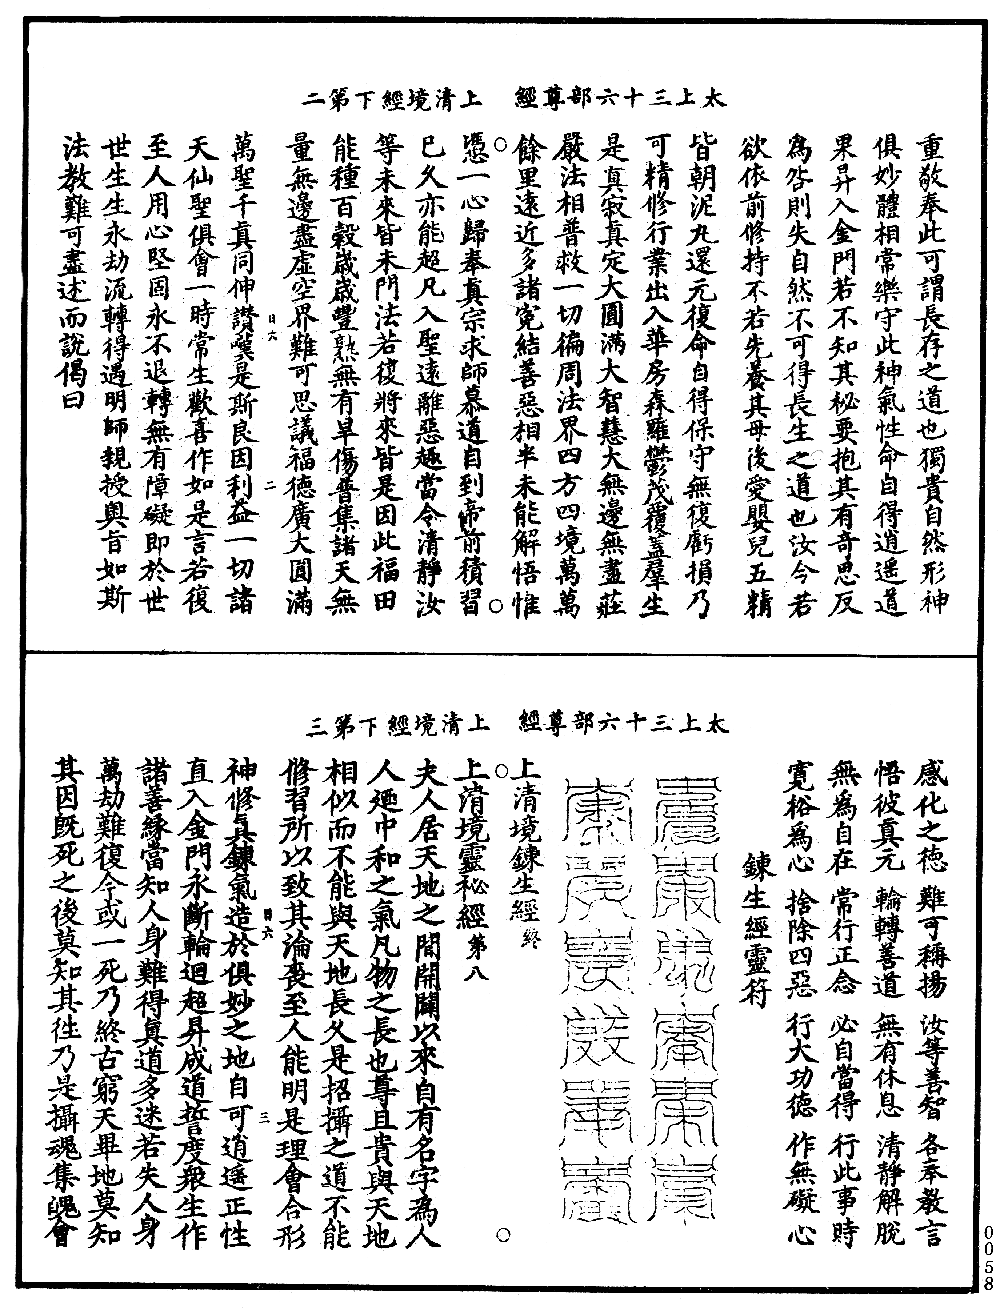 太上三十六部尊經　上清境經下第二
重敬奉此可謂長存之道也獨貴自然形神
俱妙體相常樂守此神氣性命自得逍遙道
果昇入金門若不知其秘要抱其有奇思反
為咎則失自然不可得長生之道也汝今若
欲依前修持不若先養其母後愛嬰兒五精
皆朝泥丸還元復命自得保守無復虧損乃
可精修行業出入華房森羅鬱茂覆蓋羣生
是真寂真定大圓滿大智慧大無邊無盡莊
嚴法相普救一切徧周法界四方四境萬萬
餘里遠近多諸寃結善惡相半未能解悟惟
憑一心歸奉真宗求師慕道自到帝前積習
已久亦能超凡入聖遠離惡趣當令清靜汝
等未來皆未門法若復將來皆是因此福田
能種百穀歲歲豐熟無有旱傷普集諸天無
量無邊盡虛空界難可思議福德廣大圓滿
萬聖千真同伸讚嘆是斯良因利益一切諸
天仙聖俱會一時常生歡喜作如是言若復
至人用心堅固永不退轉無有障礙即於世
世生生永劫流轉得遇明師親授輿旨如斯
法教難可盡述而說偈曰
太上三十六部尊經　上清境經下第三
感化之德　難可稱揚　汝等善智　各奉教言
悟彼真元　輪轉善道　無有休息　清靜解脫
無為自在　常行正念　必自當得　行此事時
寬裕為心　捨除四惡　行大功德　作無礙心
鍊生經靈符
上清境鍊生經終
上清境靈秘經第八
夫人居天地之間開闢以來自有名字為人
人廼中和之氣凡物之長也尊且貴與天地
相似而不能與天地長久是招攝之道不能
修習所以致其淪喪至人能明是理會合形
神修真鍊氣造於俱妙之地自可逍遙正性
直入金門永斷輪迴超昇成道誓度衆生作
諸善緣當知人身難得真道多迷若失人身
萬劫難復今或一死乃終古窮天畢地莫知
其因旣死之後莫知其往乃是攝魂集魄會
0058